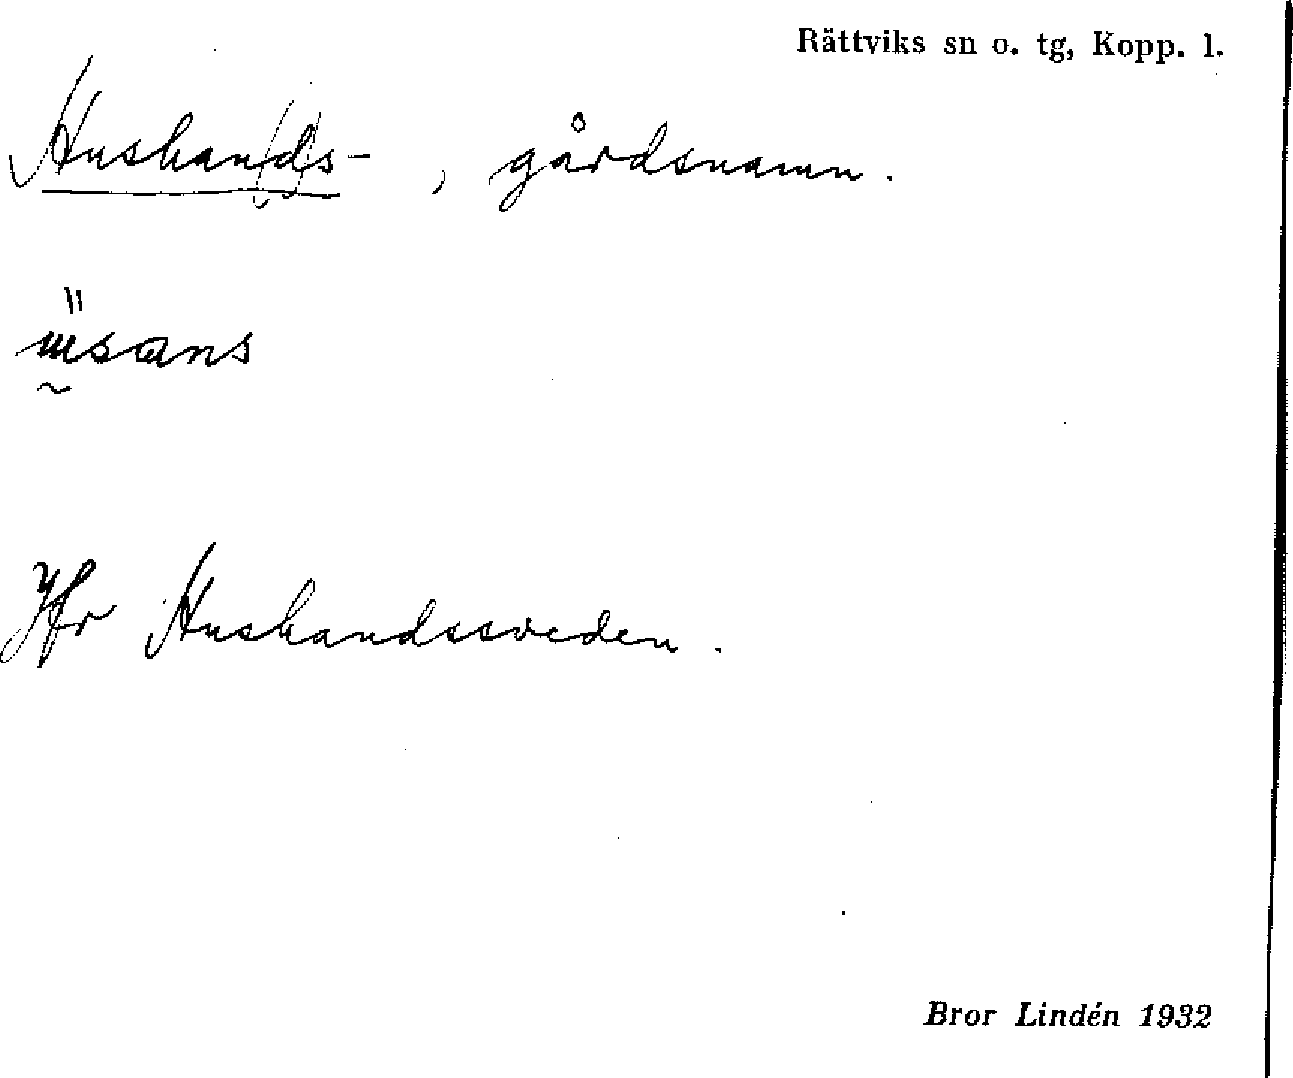 Rättviks sn o. tg, Kopp. l.
Hushands-, gårdsnamn.
Jfr Hushandssveden.
Bror Lindén 1932